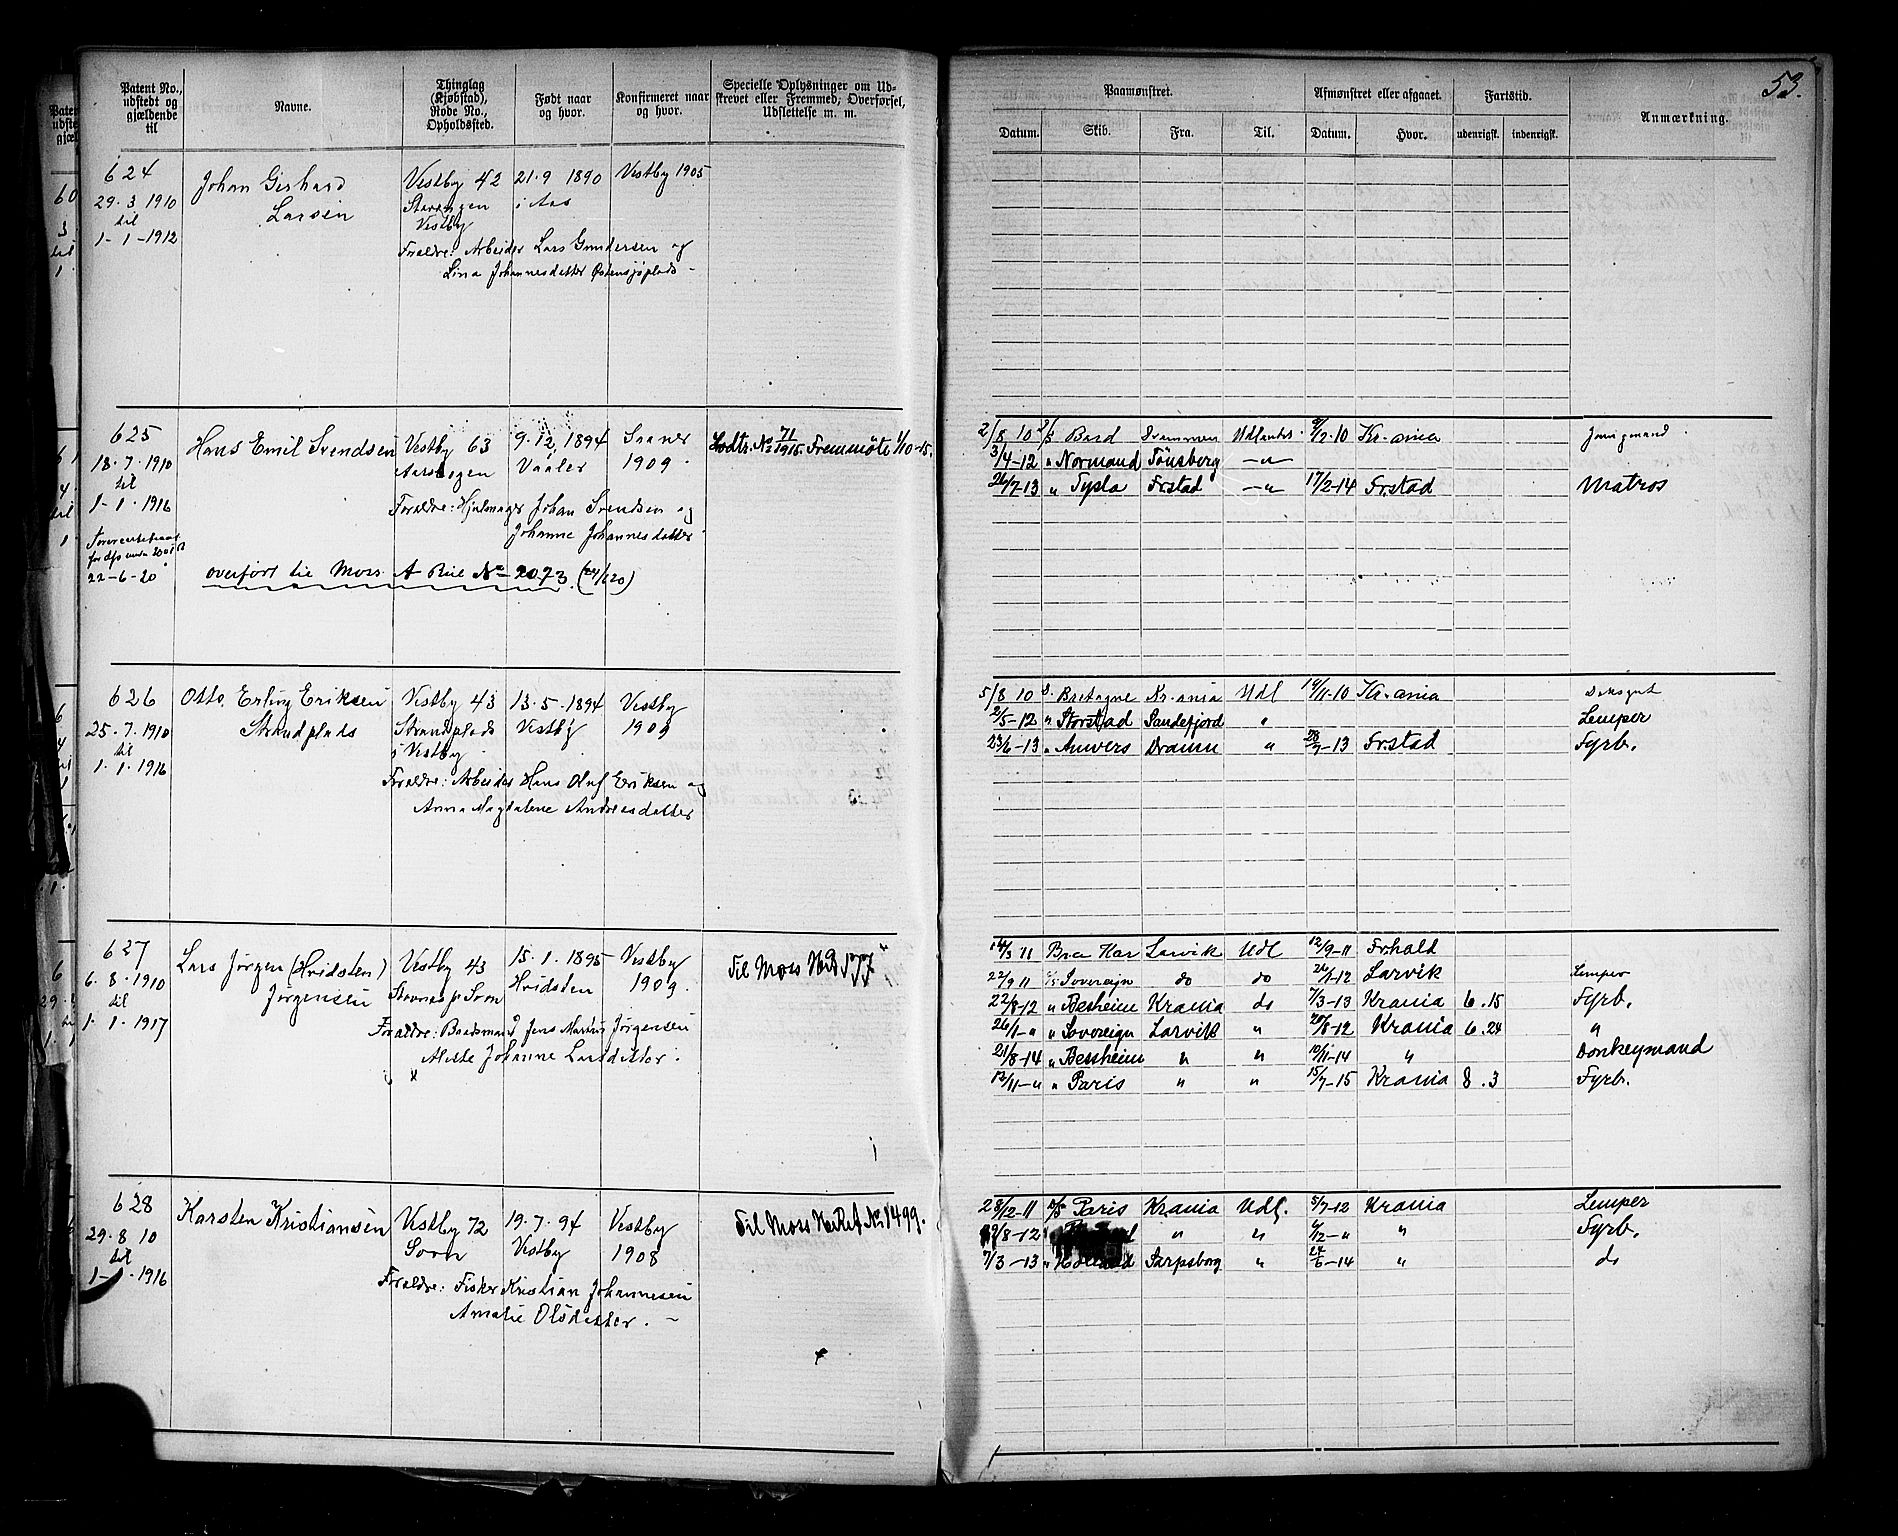 53.
Patent No., udstedt og gjældende til
Navne.
Thinglag (Kjøbstad), Rode No., Opholdssted.
Født naar og hvor.
Konfirmeret naar og hvor.
Specielle Oplysninger om Udskrevet eller Fremmed, Overførsel, Udslettelse m. m.
Paamønstret.
Afmønstret eller afgaaet.
Fartstid.
Anmærkning.
Datum. Skib. Fra. Til. Datum. Hvor. udenrigsk. indenrigsk.
624
29.3.1910
til
1-1-1912
Johan Gerhard
Larsen
Vestby 42
Vestby
21.9 1890
i Aas
Vestby 1905
Forældre: Arbeider Lars Gundersen og
Lina Johannesdatter Østensjøplads -
625
18.7.1910
til
1-1.1916
22-6-20
Hans Emil Svendsen
Vestby 63
9.12.1894
Vaaler
Soner
1909.
No 71/1915. Fremmöte 1/10-15.
Forældre: Hjulmager Johan Svendsen og
Johanne Johannesdatter
overført til Moss A Rule No 2073. (24/6 20)
2/8 10 Bard Drammen Udlandet 9/12-10 Kr-ania Jungmand
3/4-12 " Normand Tönsberg -"-
26/7-13 " Tysla Frstad -"- 17/2-14 Frstad Matros
626
25.7.1910
til
1.1.1916
Otto Erling Eriksen
Strandplads
Vestby 43
Strandplads
i Vestby
13.5.1894
Vestby
Vestby
1909
Forældre: Arbeider Hans Oluf Eriksen og
Anna Magdalene Andreasdatter
5/8 10 Bretagne Kr-ania Udl 14/11-10 Kr-ania Dæksgut
2/5-12 " Storstad Sandefjord " Lemper
23/6-13 " Anvers Dramn " 28/7-13 Frstad Fyrb.
627
6.8.1910
til
1.1.1917
Lars Jörgen (Hvidsten)
Jörgensen
Vestby 43
Stavnes p Soon
15.1.1895
Hvidsten
Vestby
1909.
Til Moss
Forældre: Baadsmand Jens Martin Jörgensen
Alette Johanne Larsdatter.
14/3 11 Bra Kar Larvik Udl 12/9-11 Frhald
22/9 11 Sovereign do do 26/1-12 Larvik Lemper
22/8-12 " Besheim Krania do 7/3-13 Krania 6.15 Fyrb.
26/1-" " Sovereign Larvik " 20/8-12 Krania 6.24 "
21/8-14 " Besheim " " 10/11-14 " Donkeymand
12/11-" " Paris " " 15/7-15 Krania 8.3 Fyrb.
628
29.8.10
til
1-1.1916
Karsten Kristiansen
Vestby 72
Soon
19.7.94
Vestby
Vestby
1908
Til Moss HoRet No 1499.
Forældre: Fisker Kristian Johannesen
Amalie Olsdatter. -
28/12-11 Paris Krania Udl. 5/7-12 Krania Lemper
19/8-12 " " " Fyrb.
7/3-13 " Sarpsborg " 24/6-14 " do